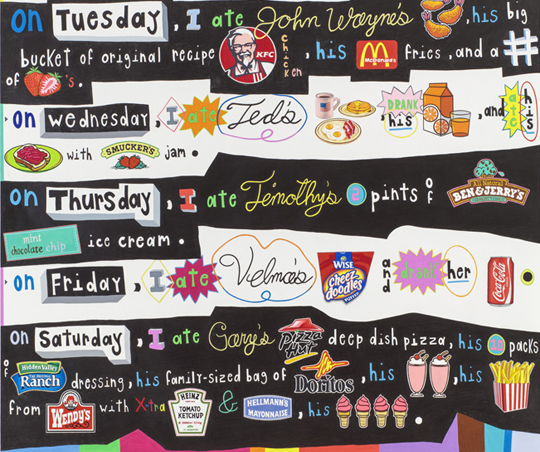 on Tuesday, I ate John Wayne's , his big
bucket of original recipe KFC chicken, his McDonald's fries, and a #
of 's.
on wednesday, I ate Ted's DRANK his , and ate his
with SMUCKER'S jam.
on Thursday, I ate Timothy's 2 pints of All Natural BEN & JERRY'S
mint chocolate chip ice cream.
on Friday, I ate Velma's WISE cheez doodles and drank her Coca-Cola
on Saturday, I ate Gary's Pizza Hut deep dish pizza, his 10 packs
of Hidden Valley Ranch dressing, his family-sized bag of Doritos, his , his
from Wendy's with X-tra HEINZ TOMATO KETCHUP & HELLMANN'S MAYONNAISE, his .